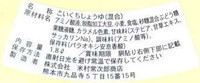 名称 こいくちしょうゆ(混合)
原材料名 アミノ酸液、脱脂加工大豆、小麦、食塩、砂糖混合ぶどう糖
果糖液糖、カラメル色素、甘味料(ステビア、甘草、
サッカリンNa)、調味料(アミノ酸等)、
保存料(パラオキシ安息香酸)
内容量 1.8ℓ 賞味期限 胴貼り右側下部に記載
保存方法 直射日光を避け常温で保存してください
製造者 株式会社 米村常次郎商店
熊本市九品寺5丁目15番15号